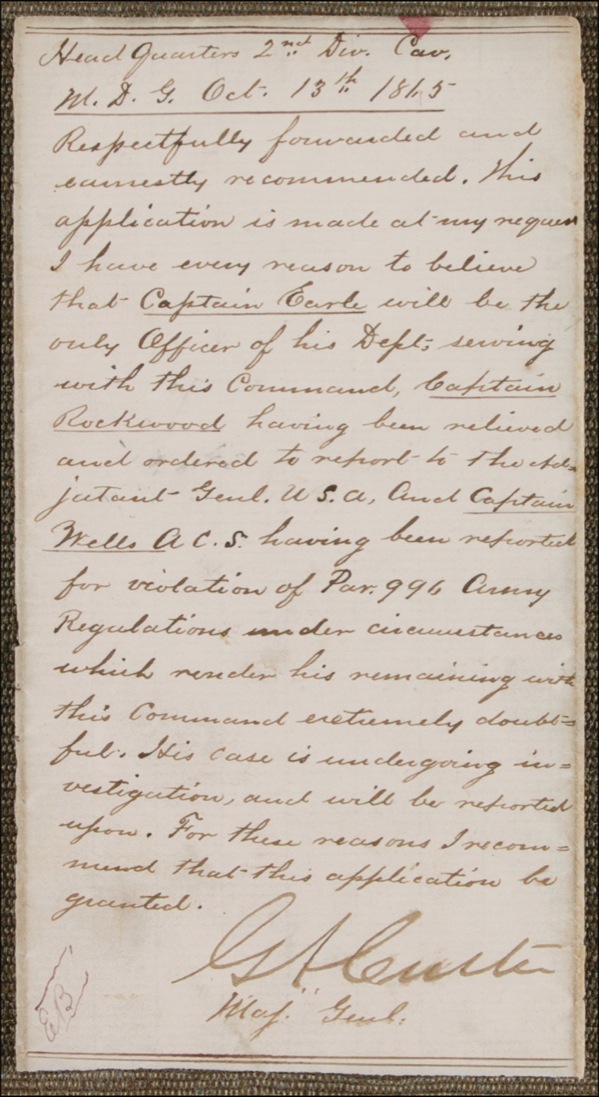 Head Quarters 2nd Div. Cav.
M. D. G. Oct. 13th 1865
Respectfully forwarded and
earnestly recommended. This
application is made at my reques
I have every reason to believe
that Captain Earle will be the
only Officer of his Dept; serving
with this Command, Captain
Rockwood having been relieved
and ordered to report to the Ad=
jutant Genl. U S. A, And Captain
Wells A C. S. having been reported
for violation of Par. 996 Army
Regulations under circumstances
which render his remaining with
this Command extremely doubt=
ful. His case is undergoing in=
vestigation, and will be reported
upon. For these reasons I recom=
mend that this application be
granted.
G A Custer
Maj. Genl.
EB